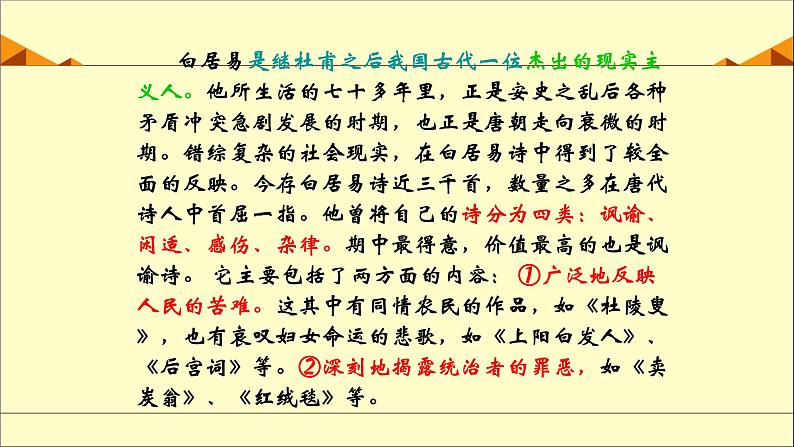 白居易是继杜甫之后我国古代一位杰出的现实主
义人。他所生活的七十多年里，正是安史之乱后各种
矛盾冲突急剧发展的时期，也正是唐朝走向衰微的时
期。错综复杂的社会现实，在白居易诗中得到了较全
面的反映。今存白居易诗近三千首，数量之多在唐代
诗人中首屈一指。他曾将自己的诗分为四类：讽谕、
闲适、感伤、杂律。期中最得意，价值最高的也是讽
谕诗。 它主要包括了两方面的内容： ①广泛地反映
人民的苦难。这其中有同情农民的作品，如《杜陵叟
》，也有哀叹妇女命运的悲歌，如《上阳白发人》、
《后宫词》等。②深刻地揭露统治者的罪恶，如《卖
炭翁》、《红绒毯》等。